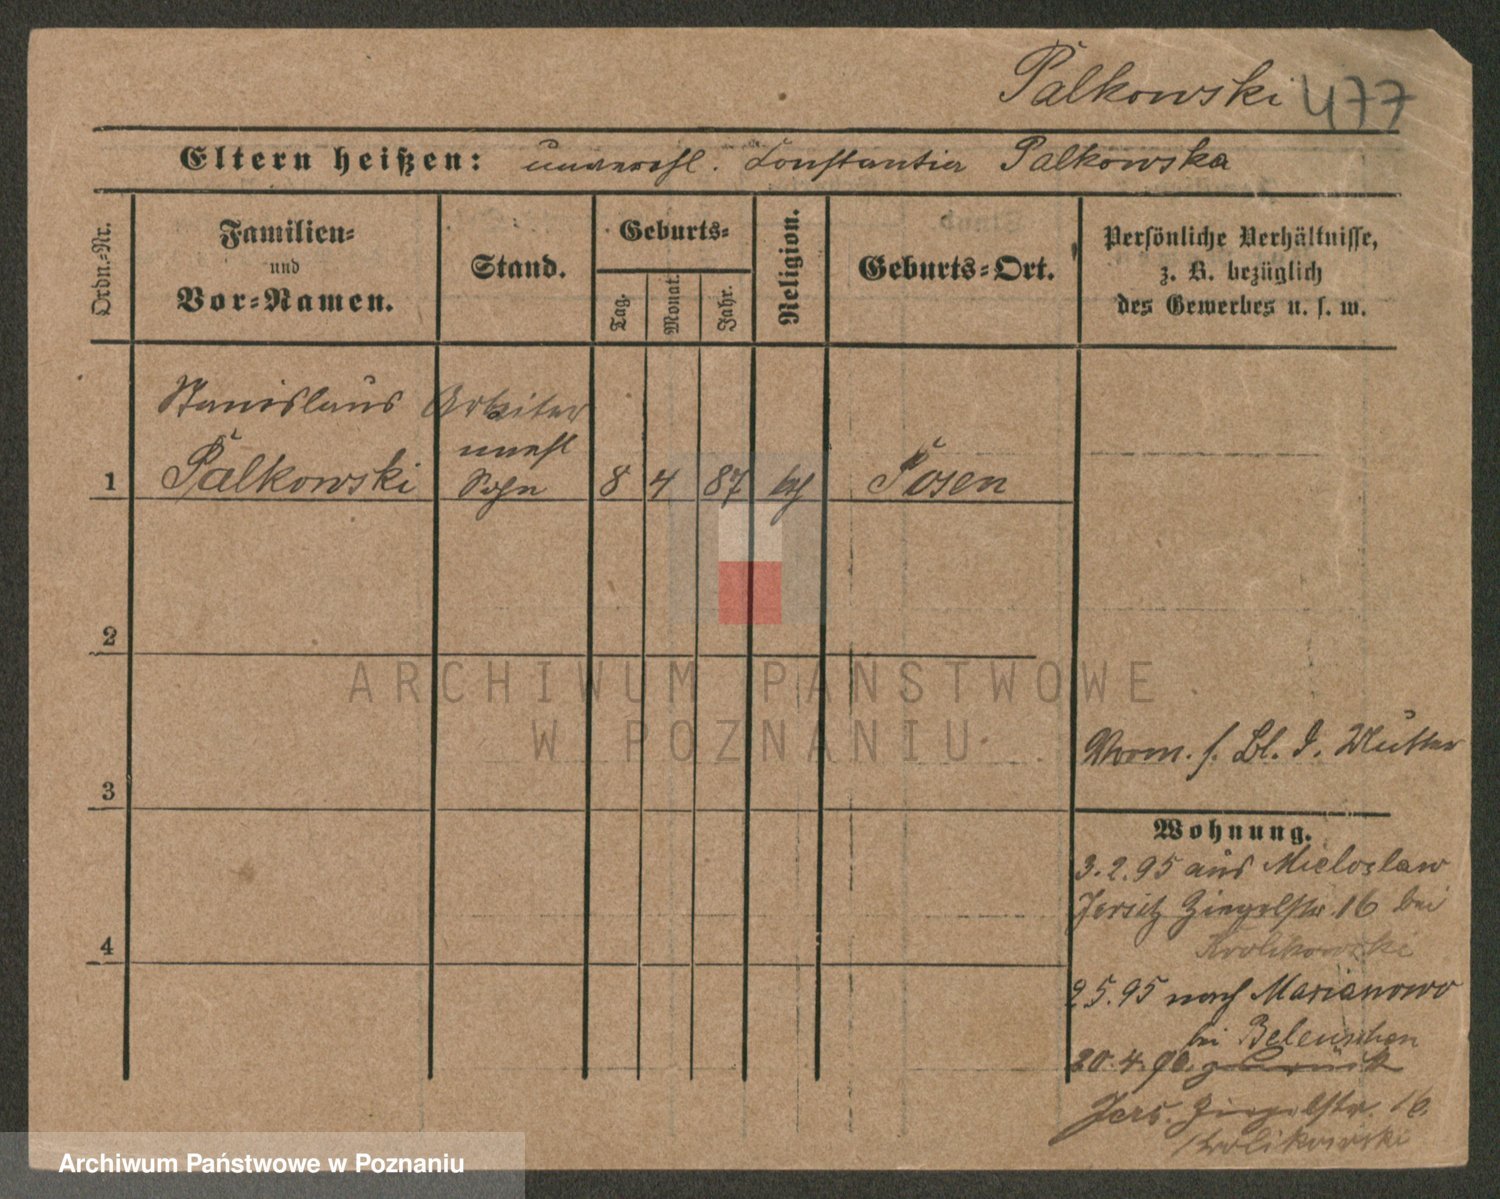 Palkowski 477
Eltern heißen: unverehl. Constantia Palkowska
Ordn.-Nr.
Familien-
und
Vor-Namen.
Stand.
Geburts-
Tag.
Monat.
Jahr.
Religion.
Geburts-Ort.
Persönliche Verhältnisse,
z. B. bezüglich
des Gewerbes u. s. w.
Stanislaus Arbeiter
unehl
1 Palkowski Sohn 8 4 87 kth Posen
2
ARCHIWUM PAŃSTWOWE
W POZNANIU
Vorm. s. Bl. d. Mutter
3
Wohnung.
3.2.95 aus Mieloslaw
Jersitz Ziegelstr. 16 bei
Krolikowski
4
2.5.95 nach Marianowo
bei
20.4.96 zurück
Jers. Ziegelstr. 16
Krolikowski
Archiwum Państwowe w Poznaniu